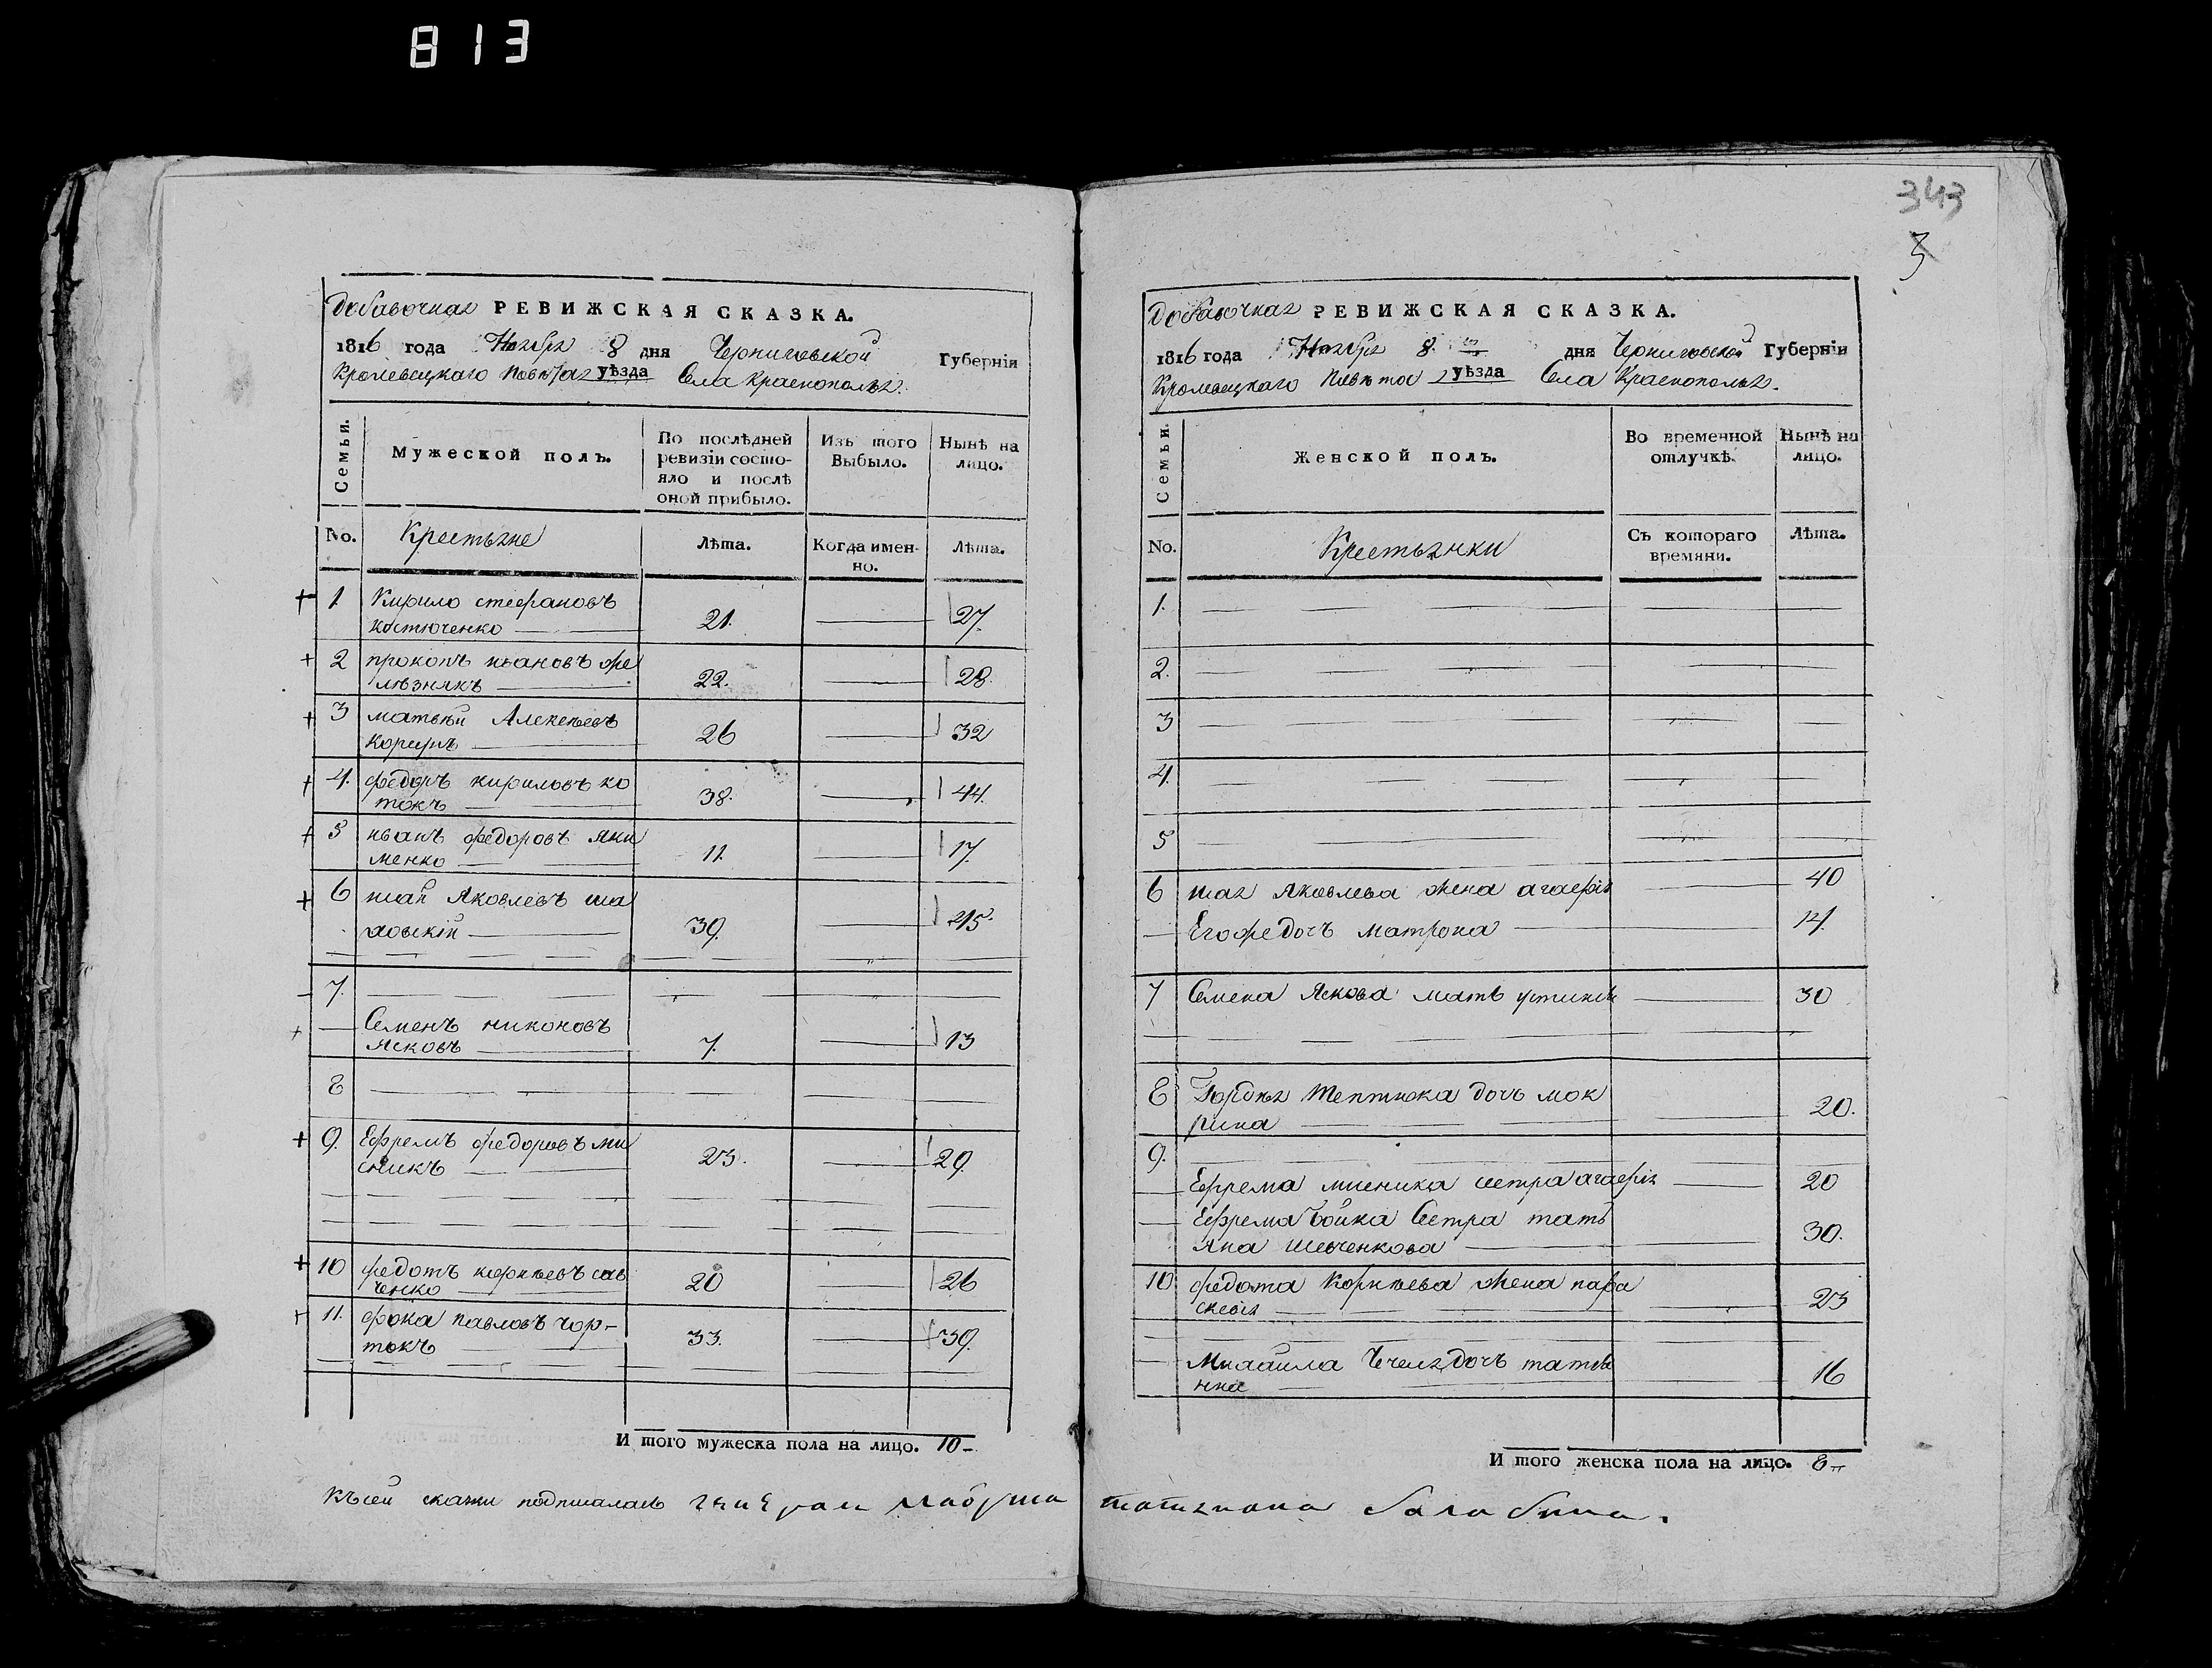 813
343
3
Добавочная РЕВИЖСКАЯ СКАЗКА.
1816 года Ноября 8 дня Черниговской Губерніи
Кролевецкаго Повѣта уѣзда Села Краснополья.
Семьи.
Мужеской полъ.
По послѣдней ревизіи состо-
яло и послѣ
оной прибыло.
Изъ того
Выбыло.
Нынѣ на
лицо.
No. Крестьяне Лѣта. Когда имен-
но. Лѣта.
1. Кирило стефановъ
костюченко 21. 27.
2 прокопъ ивановъ же
лѣзнякъ 22. 28.
3 матвѣй Алексѣевъ
26 32
4. федоръ кириловъ ко
токъ 38. 44.
5 иванъ федоровъ яки
менко 11. 17.
6 Яковлевъ
39. 45.
7.
Семенъ никоновъ
Ясковъ 7. 13
8
9. Ефремъ федоровъ ми
сникъ 23. 29.
10 федотъ корнѣевъ сав
ченко 20 26
11. фока павловъ чор-
токъ 33. 39.
И того мужеска пола на лицо. 10
Добавочная РЕВИЖСКАЯ СКАЗКА.
1816 года Ноября 8. дня Черниговской Губерніи
Кролевецкаго Повѣта уѣзда Села Краснополья.
Семьи.
Женской полъ.
Во временной
отлучкѣ.
Нынѣ на
лицо.
No. Крестьянки Съ котораго
времяни. Лѣта.
1.
2.
3
4.
5
6 Яковлева жена агафія 40
Егожедочъ матрона 14.
7 Семена Яскова мать устинья 30
8 дочь мок
рина 20.
9.
Ефрема мисника сестра агафія 20
Ефрема бойка Сестра тать
яна шевченкова 30.
10 федота Корнѣева жена пара
скевія 23
Михайла дочъ татья
на 16
И того женска пола на лицо. 8
Късей скаски подписалась татияна балабина.